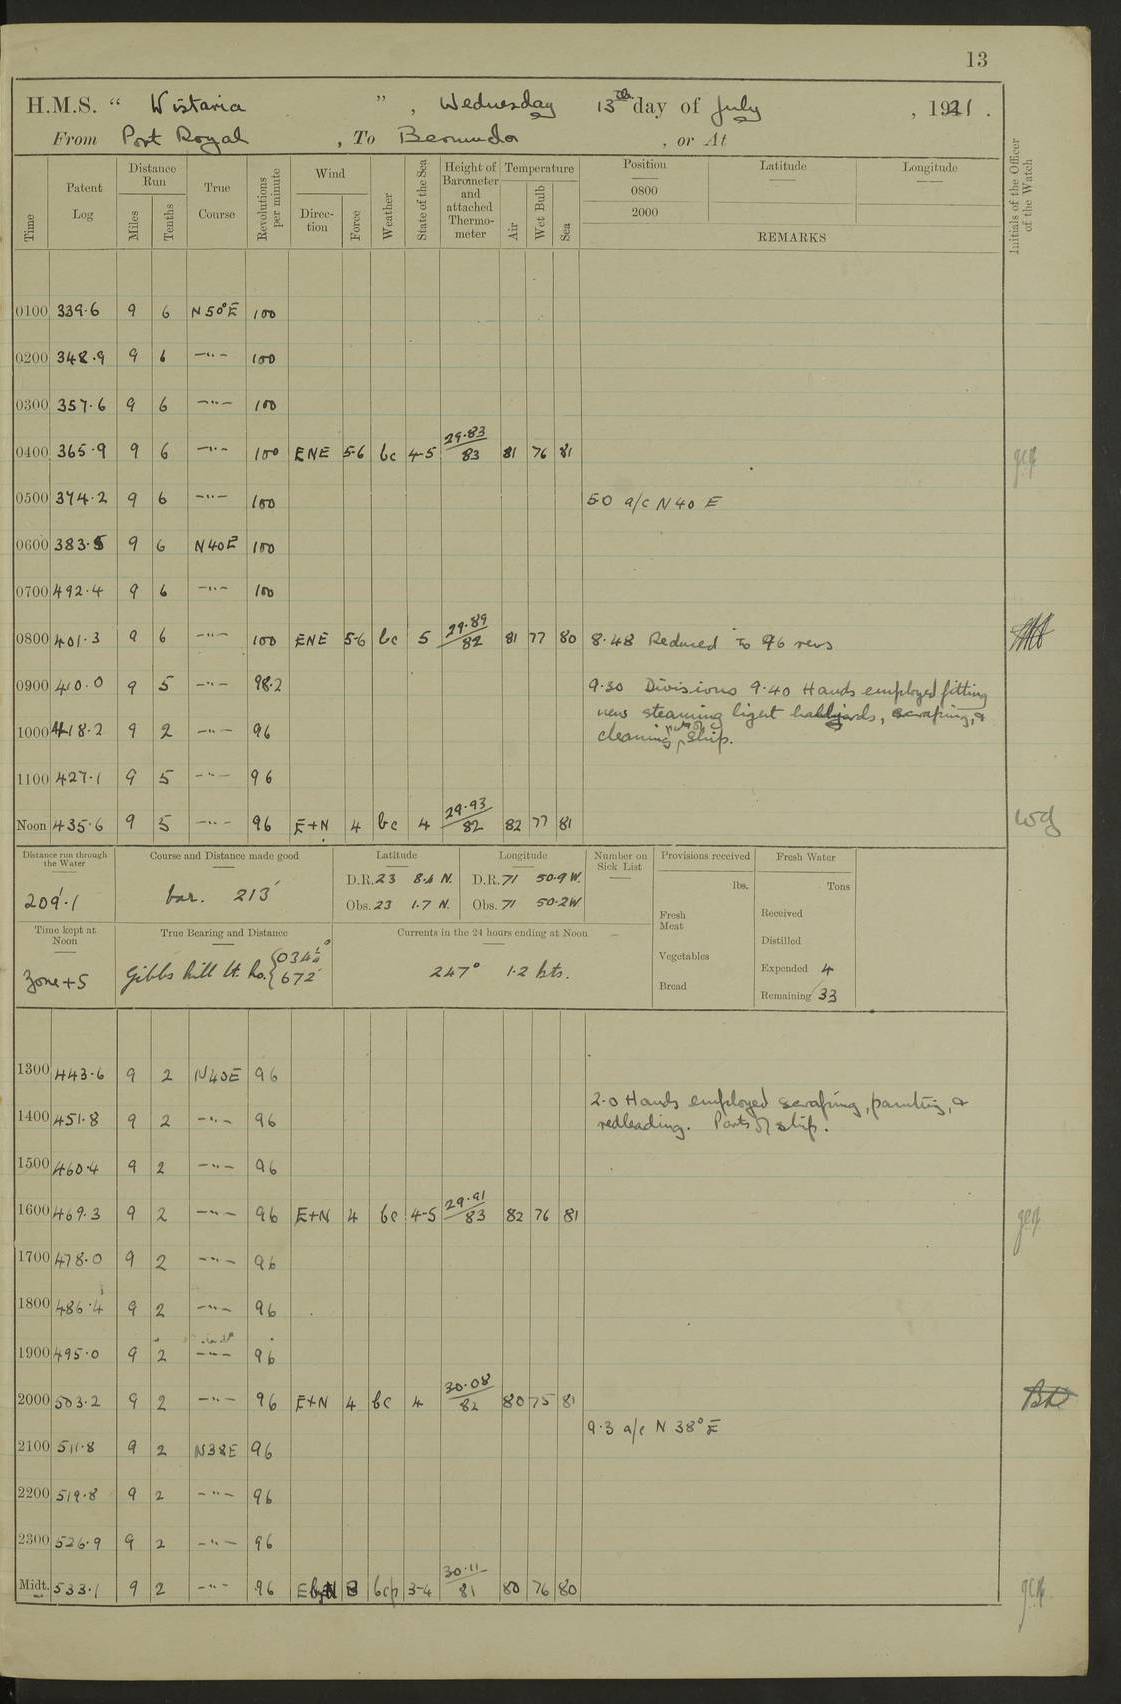 13
H.M.S. “ Wistaria ” , Wednesday 13th day of July , 1921 .
From Port Royal , To Bermuda , or At
Time
Patent Log
Distance Run
Miles Tenths
True Course
Revolutions per minute
Wind
Direction Force
Weather
State of the Sea
Height of Barometer and attached Thermometer
Temperature
Air Wet Bulb Sea
Position Latitude Longitude
0800
2000
REMARKS
Initials of the Officer of the Watch
0100 339·6 9 6 N 50° E 100
0200 348·9 9 6 —"— 100
0300 357·6 9 6 —"— 100
0400 365·9 9 6 —"— 100 ENE 5-6 bc 4-5 29·83/83 81 76 81
0500 374·2 9 6 —"— 100 5·0 a/c N 40 E
0600 383·5 9 6 N40E 100
0700 492·4 9 6 —"— 100
0800 401·3 9 6 —"— 100 ENE 5-6 bc 5 29·89/82 81 77 80 8·48 Reduced to 96 revs
0900 410·0 9 5 —"— 98·2 9·30 Divisions 9·40 Hands employed fitting
new steaming light halyards, scraping, &
1000 418·2 9 2 —"— 96 cleaning parts of ship.
1100 427·1 9 5 —"— 96
Noon 435·6 9 5 —"— 96 E+N 4 bc 4 29·93/82 82 77 81
Distance run through the Water
209'·1
Course and Distance made good
bar. 213'
Latitude
D.R. 23 8·4 N.
Obs. 23 1·7 N.
Longitude
D.R. 71 50·9 W.
Obs. 71 50·2 W
Number on Sick List
Provisions received
lbs.
Fresh Meat
Vegetables
Bread
Fresh Water
Tons
Received
Distilled
Expended 4
Remaining 33
Time kept at Noon
Zone +5
True Bearing and Distance
Gibbs hill Lt. Ho. { 034½° 672'
Currents in the 24 hours ending at Noon
247° 1·2 kts.
1300 443·6 9 2 N40E 96
2·0 Hands employed scraping, painting, &
1400 451·8 9 2 —"— 96 redleading. Parts of ship.
1500 460·4 9 2 —"— 96
1600 469·3 9 2 —"— 96 E+N 4 bc 4-5 29·91/83 82 76 81
1700 478·0 9 2 —"— 96
1800 486·4 9 2 —"— 96
1900 495·0 9 2 —"— 96
2000 503·2 9 2 —"— 96 E+N 4 bc 4 30·08/82 80 75 81
9·3 a/c N 38° E
2100 511·8 9 2 N38E 96
2200 519·8 9 2 —"— 96
2300 526·9 9 2 —"— 96
Midt. 533·1 9 2 —"— 96 EbyN bcp 3-4 30·11/81 80 76 80